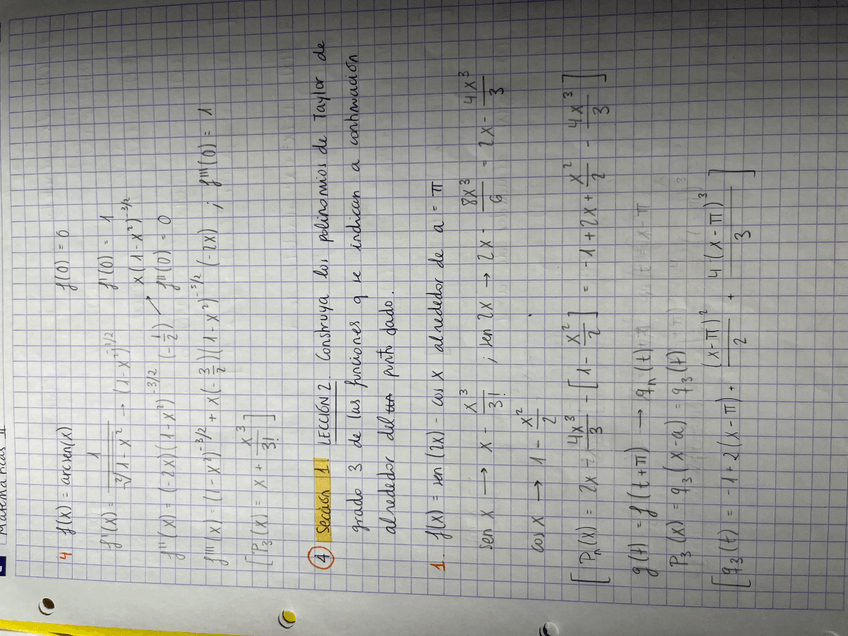 Matemáticas II
4. f(x) = arcsen(x) f(0) = 0
f'(x) = 1/²√(1-x²) → (1-x²)^(-1/2) f'(0) = 1
x(1-x²)^(-3/2)
f''(x) = (-2x)(1-x²)^(-3/2) (-1/2) ↗ f''(0) = 0
f'''(x) = (1-x²)^(-3/2) + x(-3/2)(1-x²)^(-5/2) (-2x) ; f'''(0) = 1
[P₃(x) = x + x³/3!]
④ Sección 1 LECCIÓN 2. Construya los polinomios de Taylor de
grado 3 de las funciones q se indican a continuación
alrededor del punto dado.
1. f(x) = sen(2x) - cos x alrededor de a = π
sen x → x - x³/3! ; sen 2x → 2x - 8x³/6 = 2x - 4x³/3
cos x → 1 - x²/2
[Pₙ(x) = 2x - 4x³/3 - [1 - x²/2] = -1 + 2x + x²/2 - 4x³/3]
g(t) = f(t+π) → qₙ(t)
P₃(x) = q₃(x-a) = q₃(t)
[q₃(t) = -1 + 2(x-π) + (x-π)²/2 + 4(x-π)³/3]